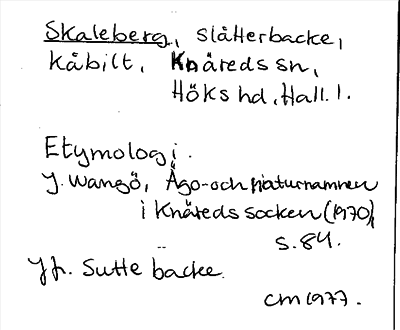 Skaleberg, slåtterbacke,
Kåbilt, Knäreds sn,
Höks hd, Hall. l.
Etymologi.
J. Wangö, Ägo- och naturnamnen
i Knäreds socken (1970)
s. 84.
Jfr. Sutte backe.
CM 1977.